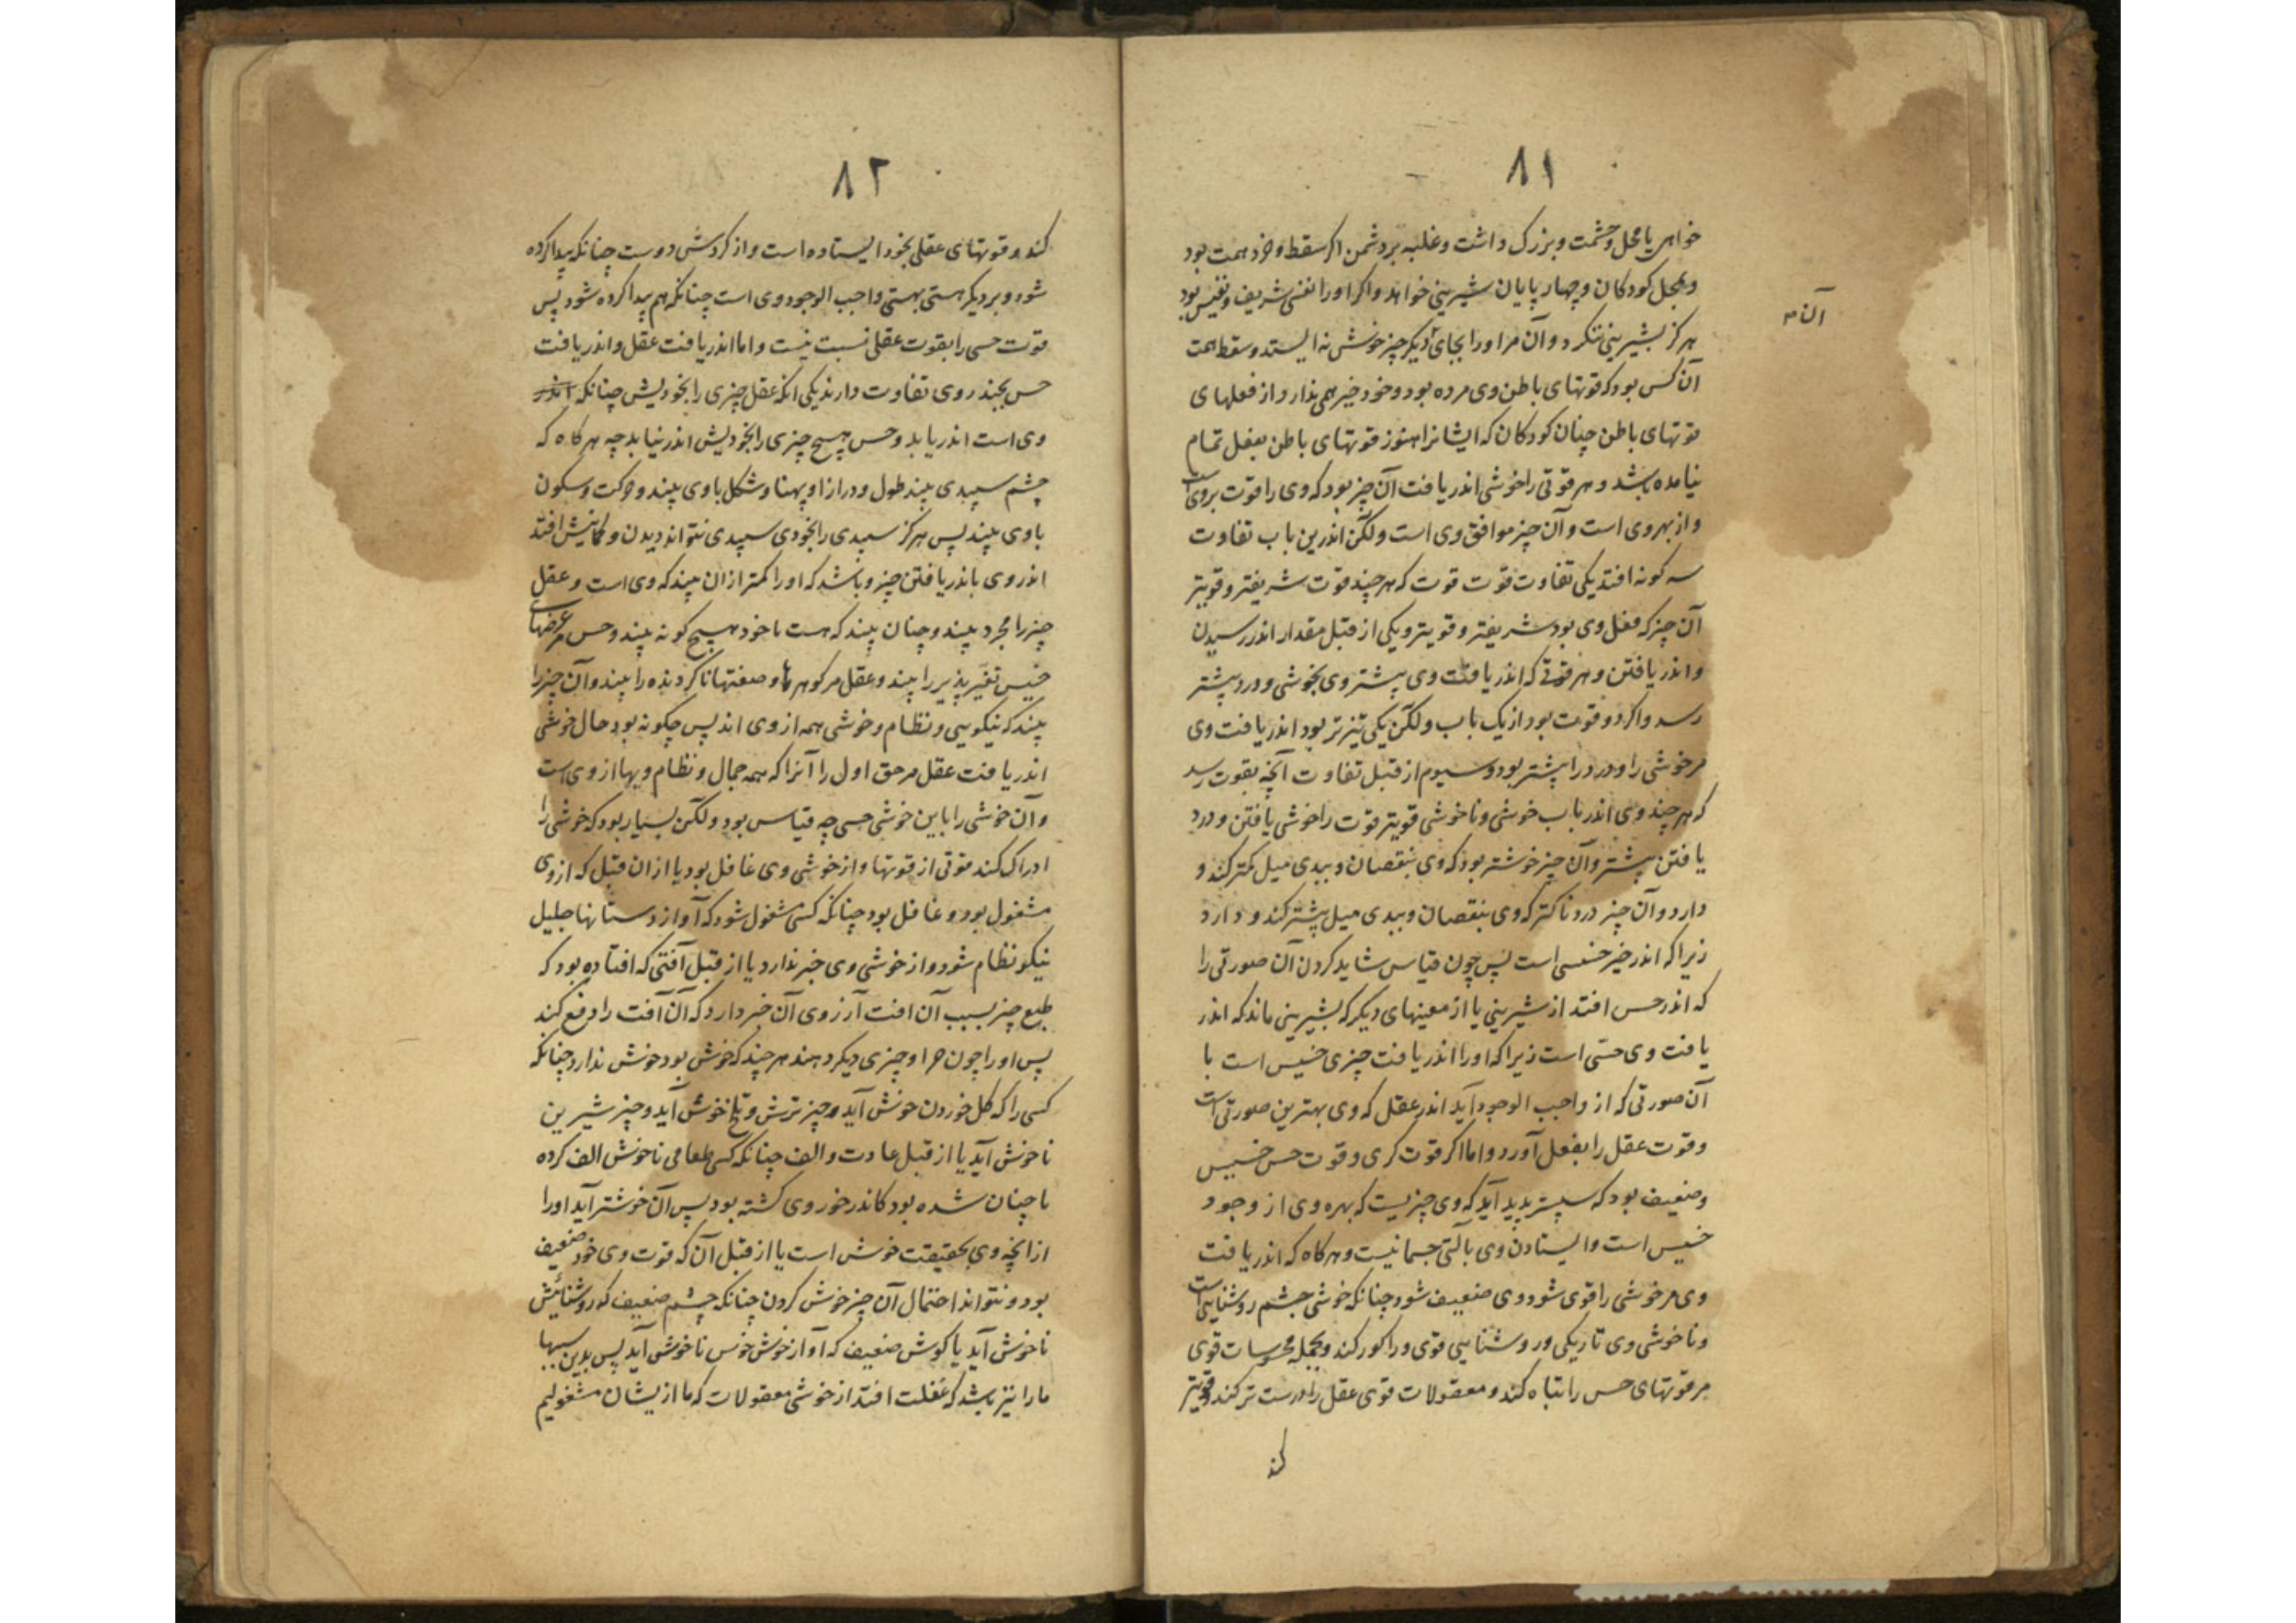 ۸۱
خواهی یا محل و حشمت و بزرک داشت و غلبه بر دشمن اکر سقط و خرد همت بود
و بمحل کودکان و چهار پایان شیرینی خواهد و اکر او را نفسی شریف و نفیس بود
هرکز بشیرینی ننکرد و آن مر او را بجای دیکر چیز خوش نه ایستد و سقط همت
آن م
آن کس بود که قوتهای باطن وی مرده بود و خود خبر همی ندارد از فعلهای
قوتهای باطن چنان کودکان که ایشانرا هنوز قوتهای باطن بفعل تمام
نیامده باشد و هر قوتی را خوشی اندر یافت آن چیز بود که وی را قوت بروی است
و از بهر وی است و آن چیز موافق وی است ولکن اندرین باب تفاوت
سه کونه افتد یکی تفاوت قوت قوت که هر چند قوت شریفتر و قویتر
آن چیز که فعل وی بود شریفتر و قویتر و یکی از قبل مقدار اندر رسیدن
و اندر یافتن و هر قوتی که اندر یافت وی بیشتر وی بخوشی و درد بیشتر
رسد و اکر دو قوت بود از یک باب ولکن یکی تیزتر بود اندر یافت وی
مر خوشی را و درد را بیشتر بود و سیوم از قبل تفاوت آنچه بقوت رسد
که هر چند وی اندر باب خوشی و ناخوشی قویتر قوت را خوشی یافتن و درد
یافتن بیشتر و آن چیز خوشتر بود که وی بنقصان و ببدی میل کمتر کند و
دارد و آن چیز دردناکتر که وی بنقصان و ببدی میل بیشتر کند و دارد
زیرا که اندر خیر خسسی است پس چون قیاس شاید کردن آن صورتی را
که اندر حس افتد از شیرینی یا از معینهای دیکر که بشیرینی ماند که اندر
یافت وی حسّی است زیرا که او را اندر یافت چیزی خسیس است با
آن صورتی که از واجب الوجود آید اندر عقل که وی بهترین صورتی است
و قوت عقل را بفعل آورد و اما اکر قوت کری و قوت حس خسیس
و ضعیف بود که سپستر پدید آید که وی چیزیست که بهره وی از وجود
خسیس است و ایستادن وی بآلتی جسمانیست و هر کاه که اندر یافت
وی مر خوشی را قوی شود وی ضعیف شود چنانکه خوشی چشم روشنایی است
و ناخوشی وی تاریکی و روشنایی قوی ورا کور کند و بجمله محسوسات قوی
مر قوتهای حس را تباه کند و معقولات قوی عقل را درست تر کند و قویتر
کند
۸۲
کند و قوتهای عقلی بخود ایستاده است و از کردش دوست چنانکه پیدا کرده
شود و بر دیکر هستی بهستی واجب الوجود وی است چنانکه هم پیدا کرده شود پس
قوت حسی را بقوت عقلی نسبت نیست و اما اندر یافت عقل و اندر یافت
حس بچند روی تفاوت دارند یکی انکه عقل چیزی را بخودیش چنانکه اندر
وی است اندر یابد و حس هیچ چیزی را بخودیش اندر نیابد چه هر کاه که
چشم سپیدی بیند طول و درازا و پهنا و شکل با وی بیند و حرکت و سکون
با وی بیند پس هرکز سپیدی را بخودی سپیدی نتواند دیدن و کمابیش افتد
اندر وی باندر یافتن چیز و باشد که او را کمتر از ان بیند که وی است و عقل
چیز را مجرد بیند و چنان بیند که هست یا خود هیچ کونه نبیند و حس مر عرضهای
خسیس تغیّر پذیر را بیند و عقل مر کوهرها و صفتها ناکردنده را بیند و آن چیز را
بیند که نیکویی و نظام و خوشی همه از وی اند پس چکونه بود حال خوشی
اندر یافت عقل مر حق اول را آنرا که همه جمال و نظام و بها از وی است
و آن خوشی را باین خوشی حسی چه قیاس بود ولکن بسیار بود که خوشی را
ادراک کند قوتی از قوتها و از خوشی وی غافل بود یا از ان قبل که از وی
مشغول بود و غافل بود چنانکه کسی مشغول شود که آواز دستانها جلیل
نیکو نظام شود و از خوشی وی خبر ندارد یا از قبل آفتی که افتاده بود که
طبع چیز بسبب آن افت آرزوی آن خبر دارد که آن آفت را دفع کند
پس او را چون مر او چیزی دیکر دهند هر چند که خوش بود خوش ندارد چنانکه
کسی را که کل خوردن خوش آید و چیز ترش و تلخ خوش آید و چیز شیرین
ناخوش آید یا از قبل عادت و الف چنانکه کسی طعامی ناخوش الف کرده
یا چنان شده بود کاندر خور وی کشته بود پس آن خوشتر آید او را
از انچه وی بحقیقت خوش است یا از قبل آن که قوت وی خود ضعیف
بود و نتواند احتمال آن چیز خوش کردن چنانکه چشم ضعیف که روشنائیش
ناخوش آید یا کوش ضعیف که آواز خوش خوس ناخوش آید پس بدین سببها
ما را نیز باشد که غفلت افتد از خوشی معقولات که ما از یشان مشغولیم